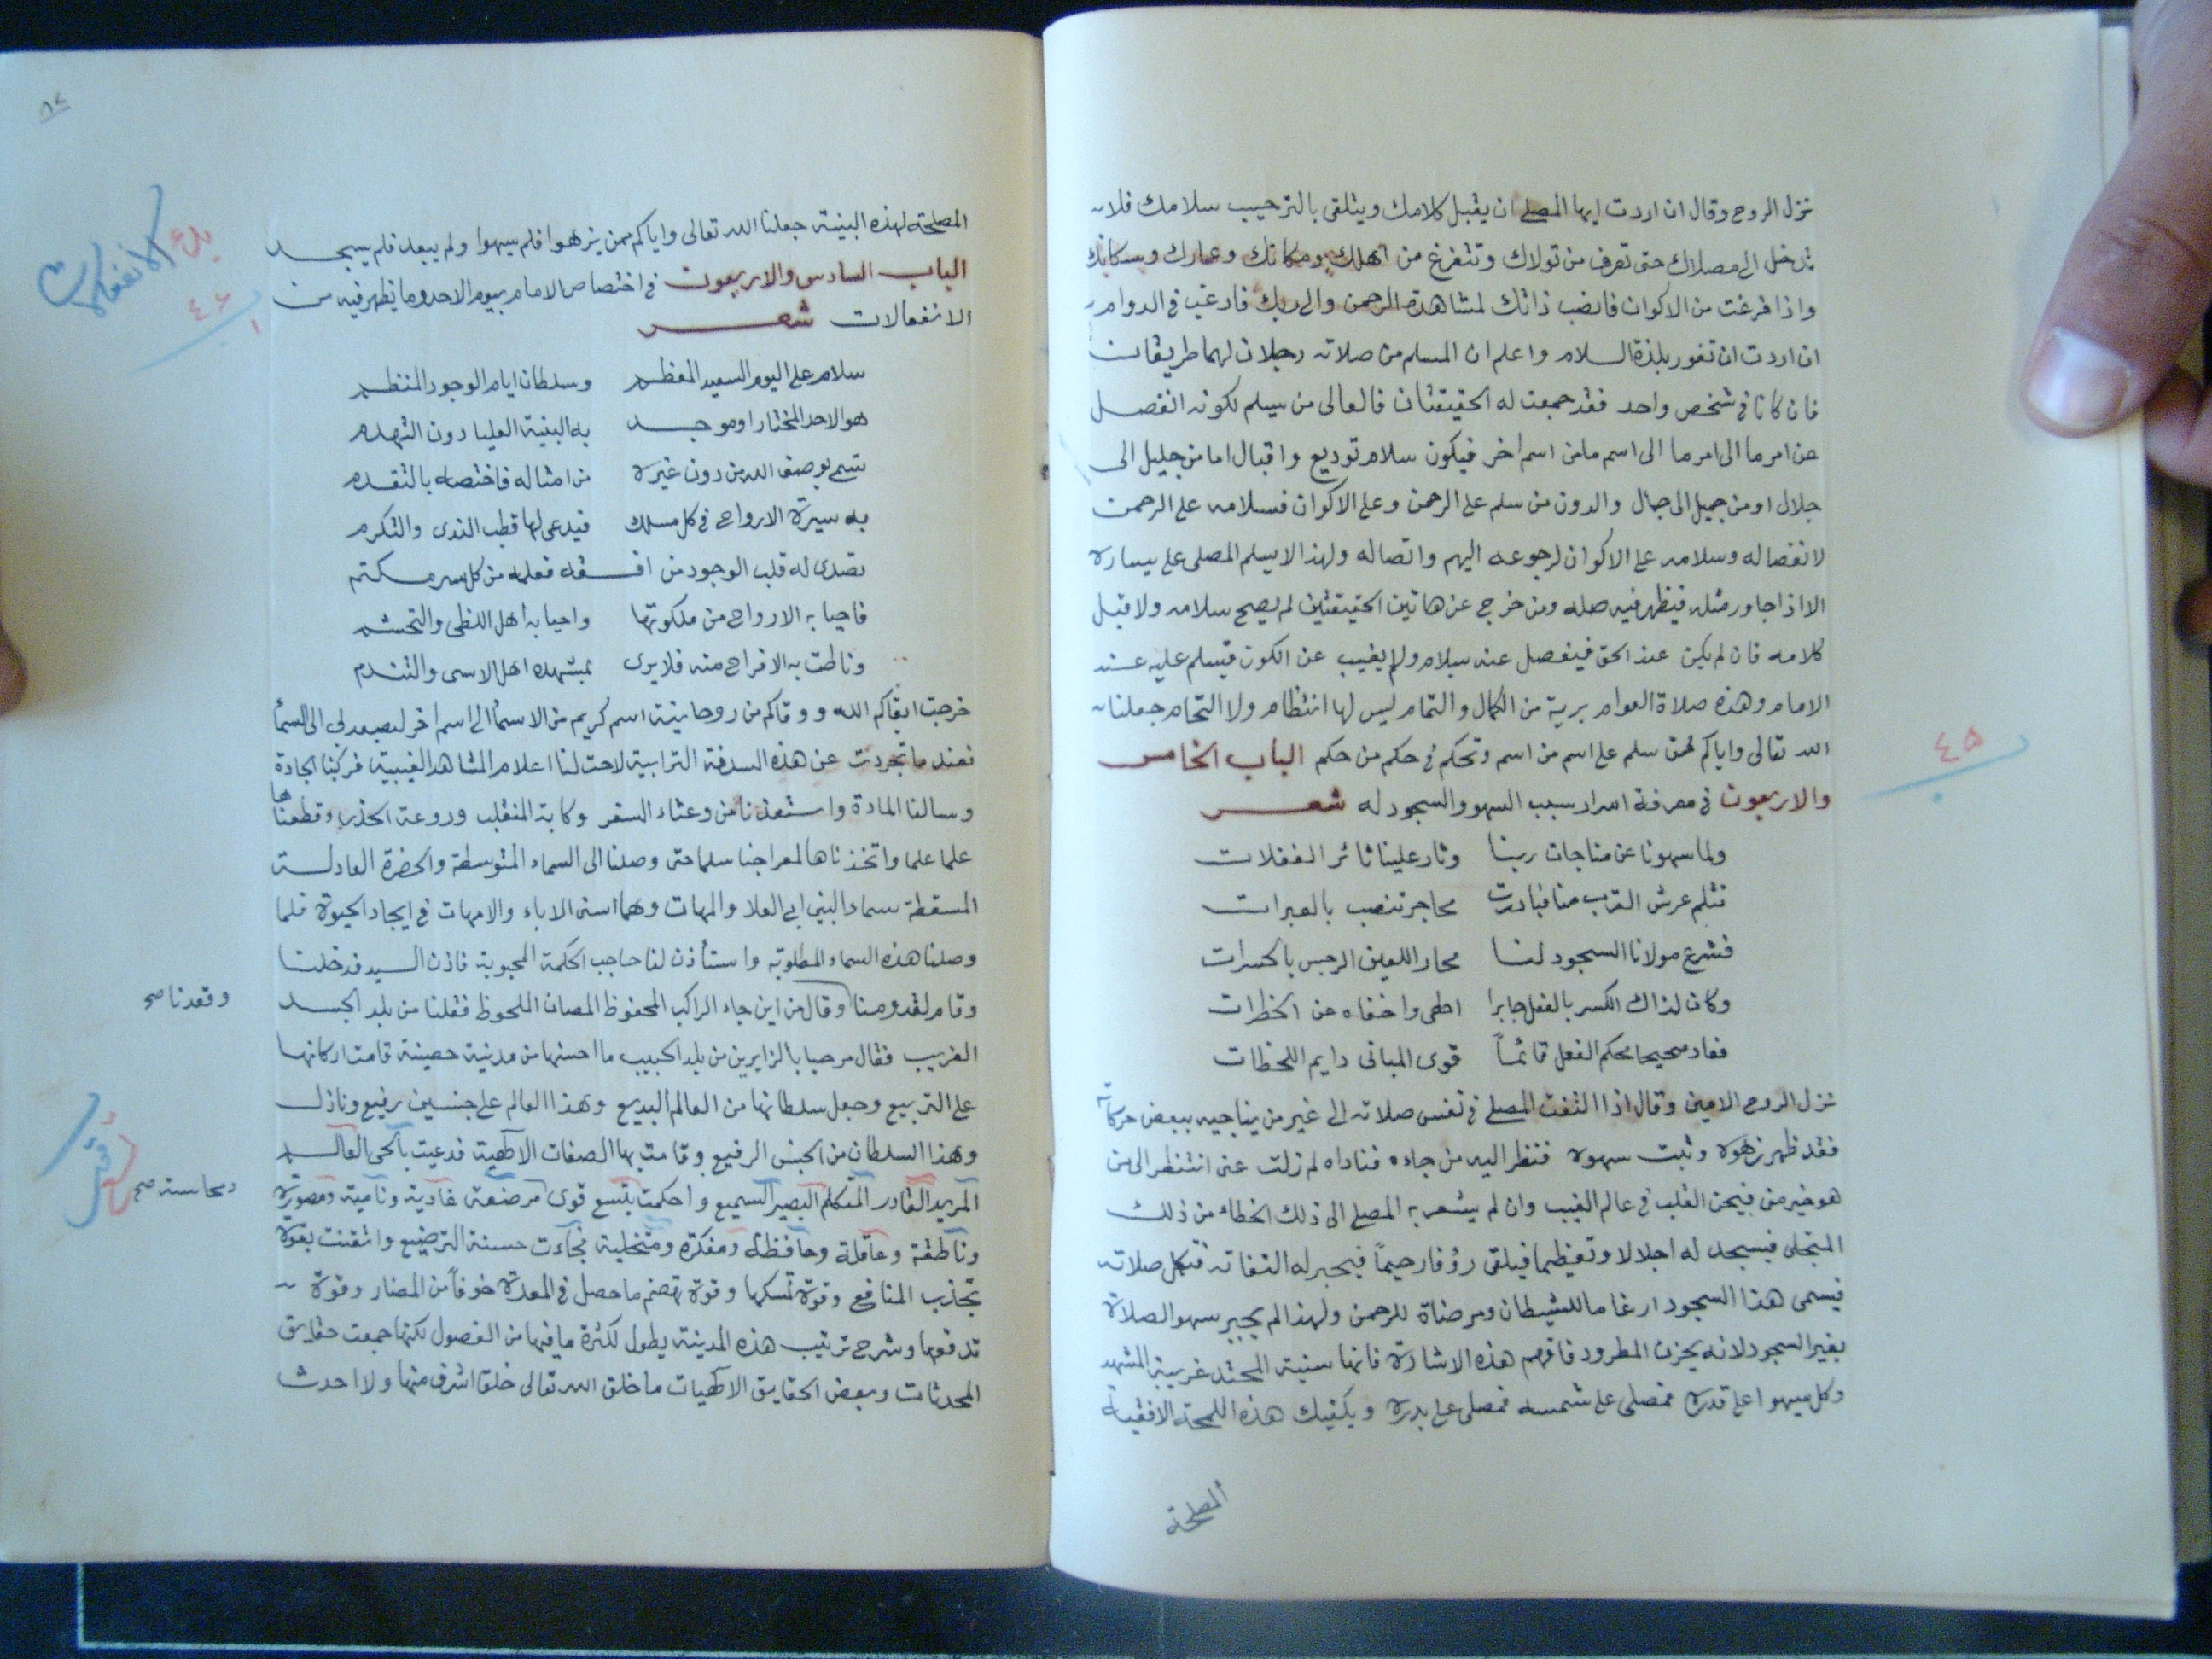 نزل الروح وقال ان اردت ايها المصلى ان يقبل كلامك ويتلقى بالترحيب سلامك فلا
تدخل الى مصلاك حتى تعرف من تولاك وتتفرغ من اهلك ومكانك وعمارك وسكانك
واذا فرغت من الاكوان فانصب ذاتك لمشاهدة الرحمن والى ربك فارغب فى الدوام
ان اردت ان تفوز بلذة السلام واعلم ان المسلم من صلاته رجلان لهما طريقان
فان كانا فى شخص واحد فقد جمعت له الحقيقتان فالعالى من يسلم لكونه انفصل
عن امر ما الى امر ما الى اسم ما من اسم اخر فيكون سلام توديع واقبال اما من جليل الى
جلال او من جميل الى جمال والدون من سلم على الرحمن وعلى الاكوان فسلامه على الرحمن
لانفصاله وسلامه على الاكوان لرجوعه اليهم واتصاله ولهذا لا يسلم المصلى على يساره
الا اذا جاور مثله فيظهر فيه صله ومن خرج عن هاتين الحقيقتين لم يصح سلامه ولا قبل
كلامه فان لم يكن عند الحق فينفصل عنه بسلام ولم يغيب عن الكون فيسلم عليه عند
الامام وهذه صلاة العوام برية من الكمال والتمام ليس لها انتظام ولا التحام جعلنا
الله تعالى واياكم ممن سلم على اسم من اسم وتحكم فى حكم من حكم الباب الخامس
والاربعون فى معرفة اسرار سبب السهو والسجود له شعر
ولما سهونا عن مناجات ربنا وثار علينا ثائر الغفلات
تثلم عرش القرب منا فبادرت محاجر تنصب بالعبرات
فشرع مولانا السجود لنا محار اللعين الرجس بالحسرات
وكان لذاك الكسر بالفعل جابرا اطى واخفاه عن الخطرات
فعاد صحيحا محكم الفعل قائماً قوى المبانى دايم اللحظات
نزل الروح الامين وقال اذا التفت المصلى فى نفس صلاته الى غير من يناجيه ببعض حركاته
فقد ظهر زهوه وثبت سهوه فنظر اليه من جاءه فناداه لم زلت عنى انتنظر الى من
هو خير منى فيحن القلب فى عالم الغيب وان لم يشعر به المصلى الى ذلك الخطاء من ذلك
المتجلى فيسجد له اجلالا وتعظيما فيلقى رؤفا رحيماً فيجبر له التفاته فتكمل صلاته
فيسمى هذا السجود ارغاما للشيطان ومرضاة للرحمن ولهذا لم يجبر سهو الصلاة
بغير السجود لانه يحزن المطرود فافهم هذه الاشارة فانها سنية المحتد غريبة المشهد
وكل يسهوا على قدره فمصلى على شمسه فمصلى على بدره ويكفيك هذه اللمحة الافقية
المصلحة
٤٥
المصلحة لهذه البنية جعلنا الله تعالى واياكم ممن يزهوا فلم يسهوا ولم يبعد فلم يسجد
الباب السادس والاربعون فى اختصاص الامام بيوم الاحد وما يظهر فيه من
الانفعالات شعر
سلام على اليوم السعيد المعظم وسلطان ايام الوجود المنظم
هو الاحد المختار او موجد به البنية العليا دون التهدم
تسم بوصف الله من دون غيره من امثاله فاختصه بالتقدم
به سيرة الارواح فى كل مسلك فيدعى لها قطب الندى والتكرم
تصدى له قلب الوجود من افقه فعلمه من كل سر مكتم
فاحيا به الارواح من ملكوتها واحيا به اهل اللظى والتحشم
وناطت به الافراح منه فلا يرى بمشهده اهل الاسى والتندم
خرجت ابقاكم الله ووقاكم من روحانية اسم كريم من الاسما الى اسم اخر ليصعد لى الى السما
فعند ما تجردت عن هذه السدفة الترابية لاحت لنا اعلام المشاهد الغيبية فركبنا الجادة
وسالنا المادة واستعذنا من وعثاء السفر وكابة المنقلب وروعة الحذر وقطعناها
علما علما واتخذناها لمعراجنا سلما حتى وصلنا الى السماء المتوسطة والحضرة العادلة
المسقطة سماء البنى ابى العلا والمهات وهما اسنى الاباء والامهات فى ايجاد الحيوة فلما
وصلنا هذه السماء المطلوبة واستأذن لنا حاجب الحكمة المحبوبة فاذن السيد فدخلنا
وقام لقدومنا وقال من اين جاء الراكب المحفوظ المصان الملحوظ فقلنا من بلد الجسد
وقعدنا صح
الغريب فقال مرحبا بالزايرين من بلد الحبيب ما احسنها من مدينة حصينة قامت اركانها
على التربيع وجعل سلطانها من العالم البديع وهذا العالم على جنسين رفيع ونازل
وهذا السلطان من الجنس الرفيع وقامت بها الصفات الالهية فدعيت بالحى العالم
المريد القادر المتكلم البصير السميع واحكمت بتسع قوى مرضعة غادية ونامية ومصورة
وناطقة وعاقلة وحافظة ومفكرة ومتخيلة فجاءت حسنة الترصيع واتقنت بقوة
تجذب المنافع وقوة تمسكها وقوة تهضم ما حصل فى المعدة خوفاً من المضار وقوة
تدفعها وشرح ترتيب هذه المدينة يطول لكثرة ما فيها من الفصول لكنها جمعت حقايق
المحدثات وبعض الحقايق الالهيات ما خلق الله تعالى خلقا اشرف منها ولا احدث
وحاسة صح
٤٦